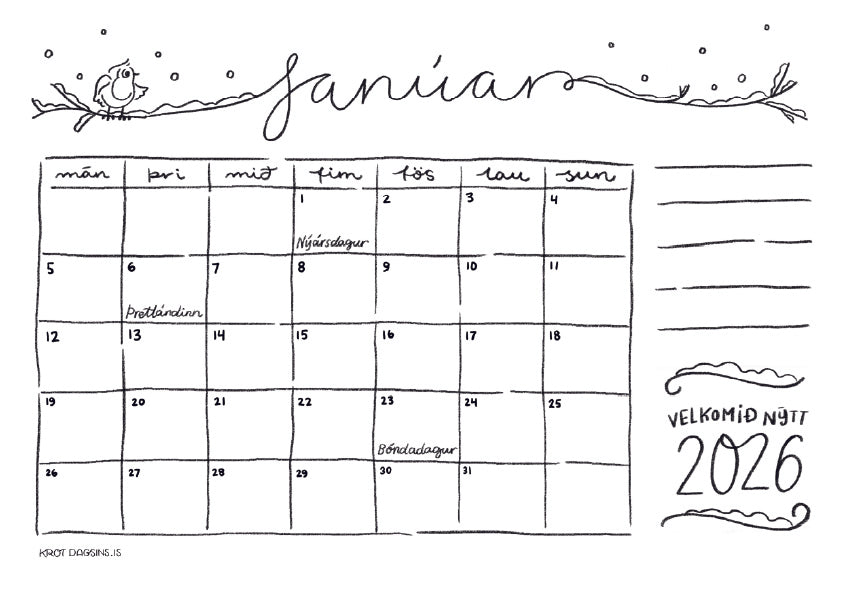 janúar
mán þri mið fim fös lau sun
1 2 3 4
Nýársdagur
5 6 7 8 9 10 11
Þrettándinn
12 13 14 15 16 17 18
19 20 21 22 23 24 25
Bóndadagur
26 27 28 29 30 31
VELKOMIÐ NÝTT
2026
KROT DAGSINS.IS